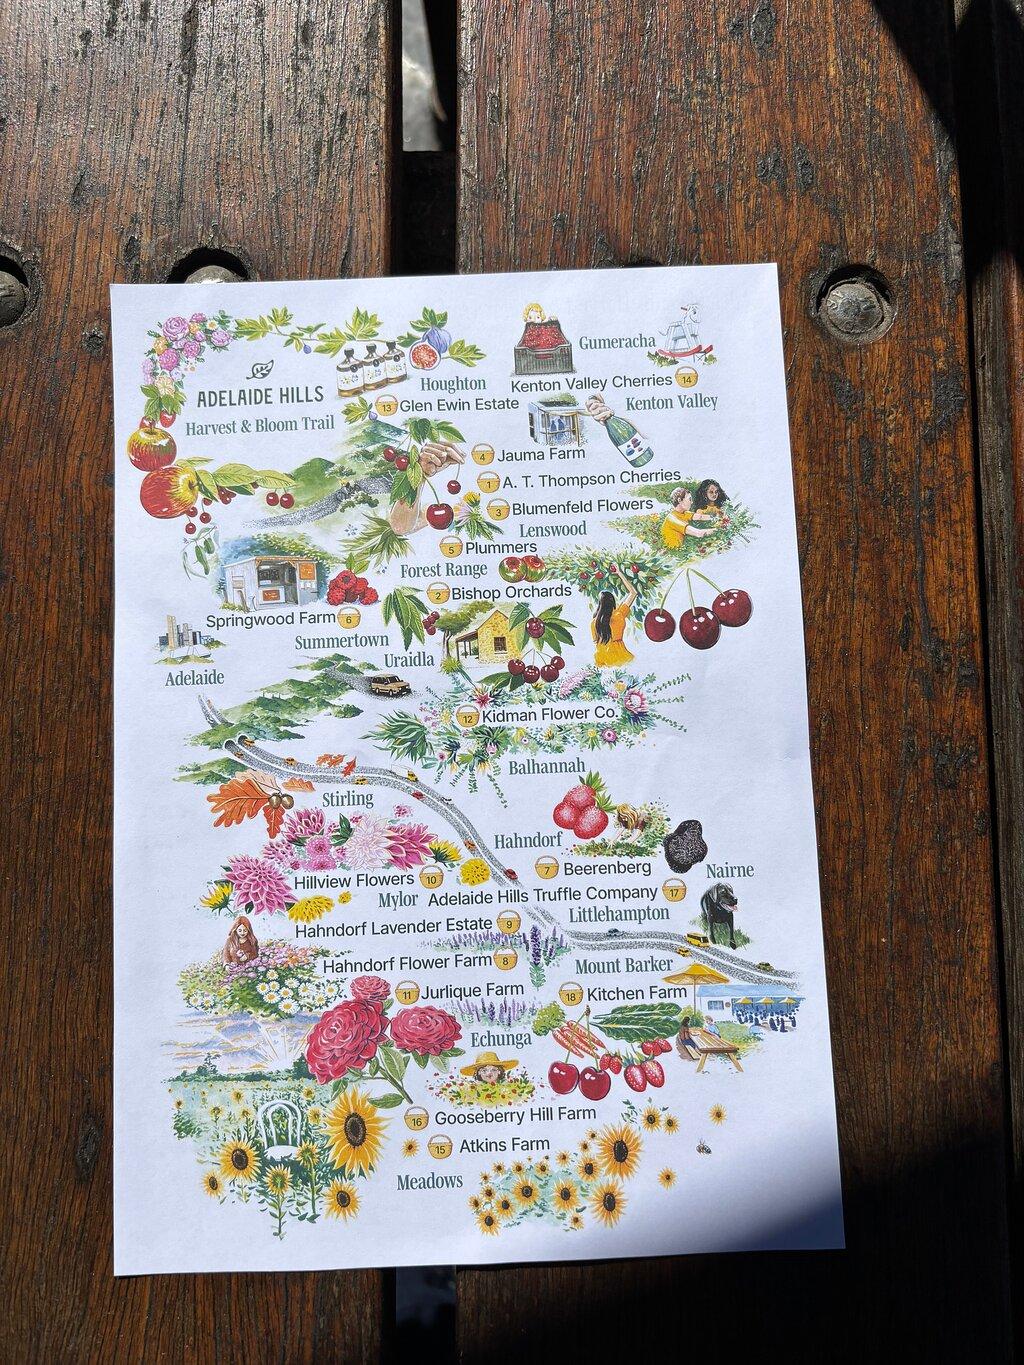 ADELAIDE HILLS
Harvest & Bloom Trail
Gumeracha
Houghton
Kenton Valley Cherries 14
13 Glen Ewin Estate
Kenton Valley
4 Jauma Farm
1 A. T. Thompson Cherries
3 Blumenfeld Flowers
Lenswood
5 Plummers
Forest Range
2 Bishop Orchards
Springwood Farm 6
Summertown
Uraidla
Adelaide
12 Kidman Flower Co.
Balhannah
Stirling
Hahndorf
7 Beerenberg
Nairne
Hillview Flowers 10
Mylor
Adelaide Hills Truffle Company 17
Littlehampton
Hahndorf Lavender Estate 9
Hahndorf Flower Farm 8
Mount Barker
11 Jurlique Farm
18 Kitchen Farm
Echunga
16 Gooseberry Hill Farm
15 Atkins Farm
Meadows